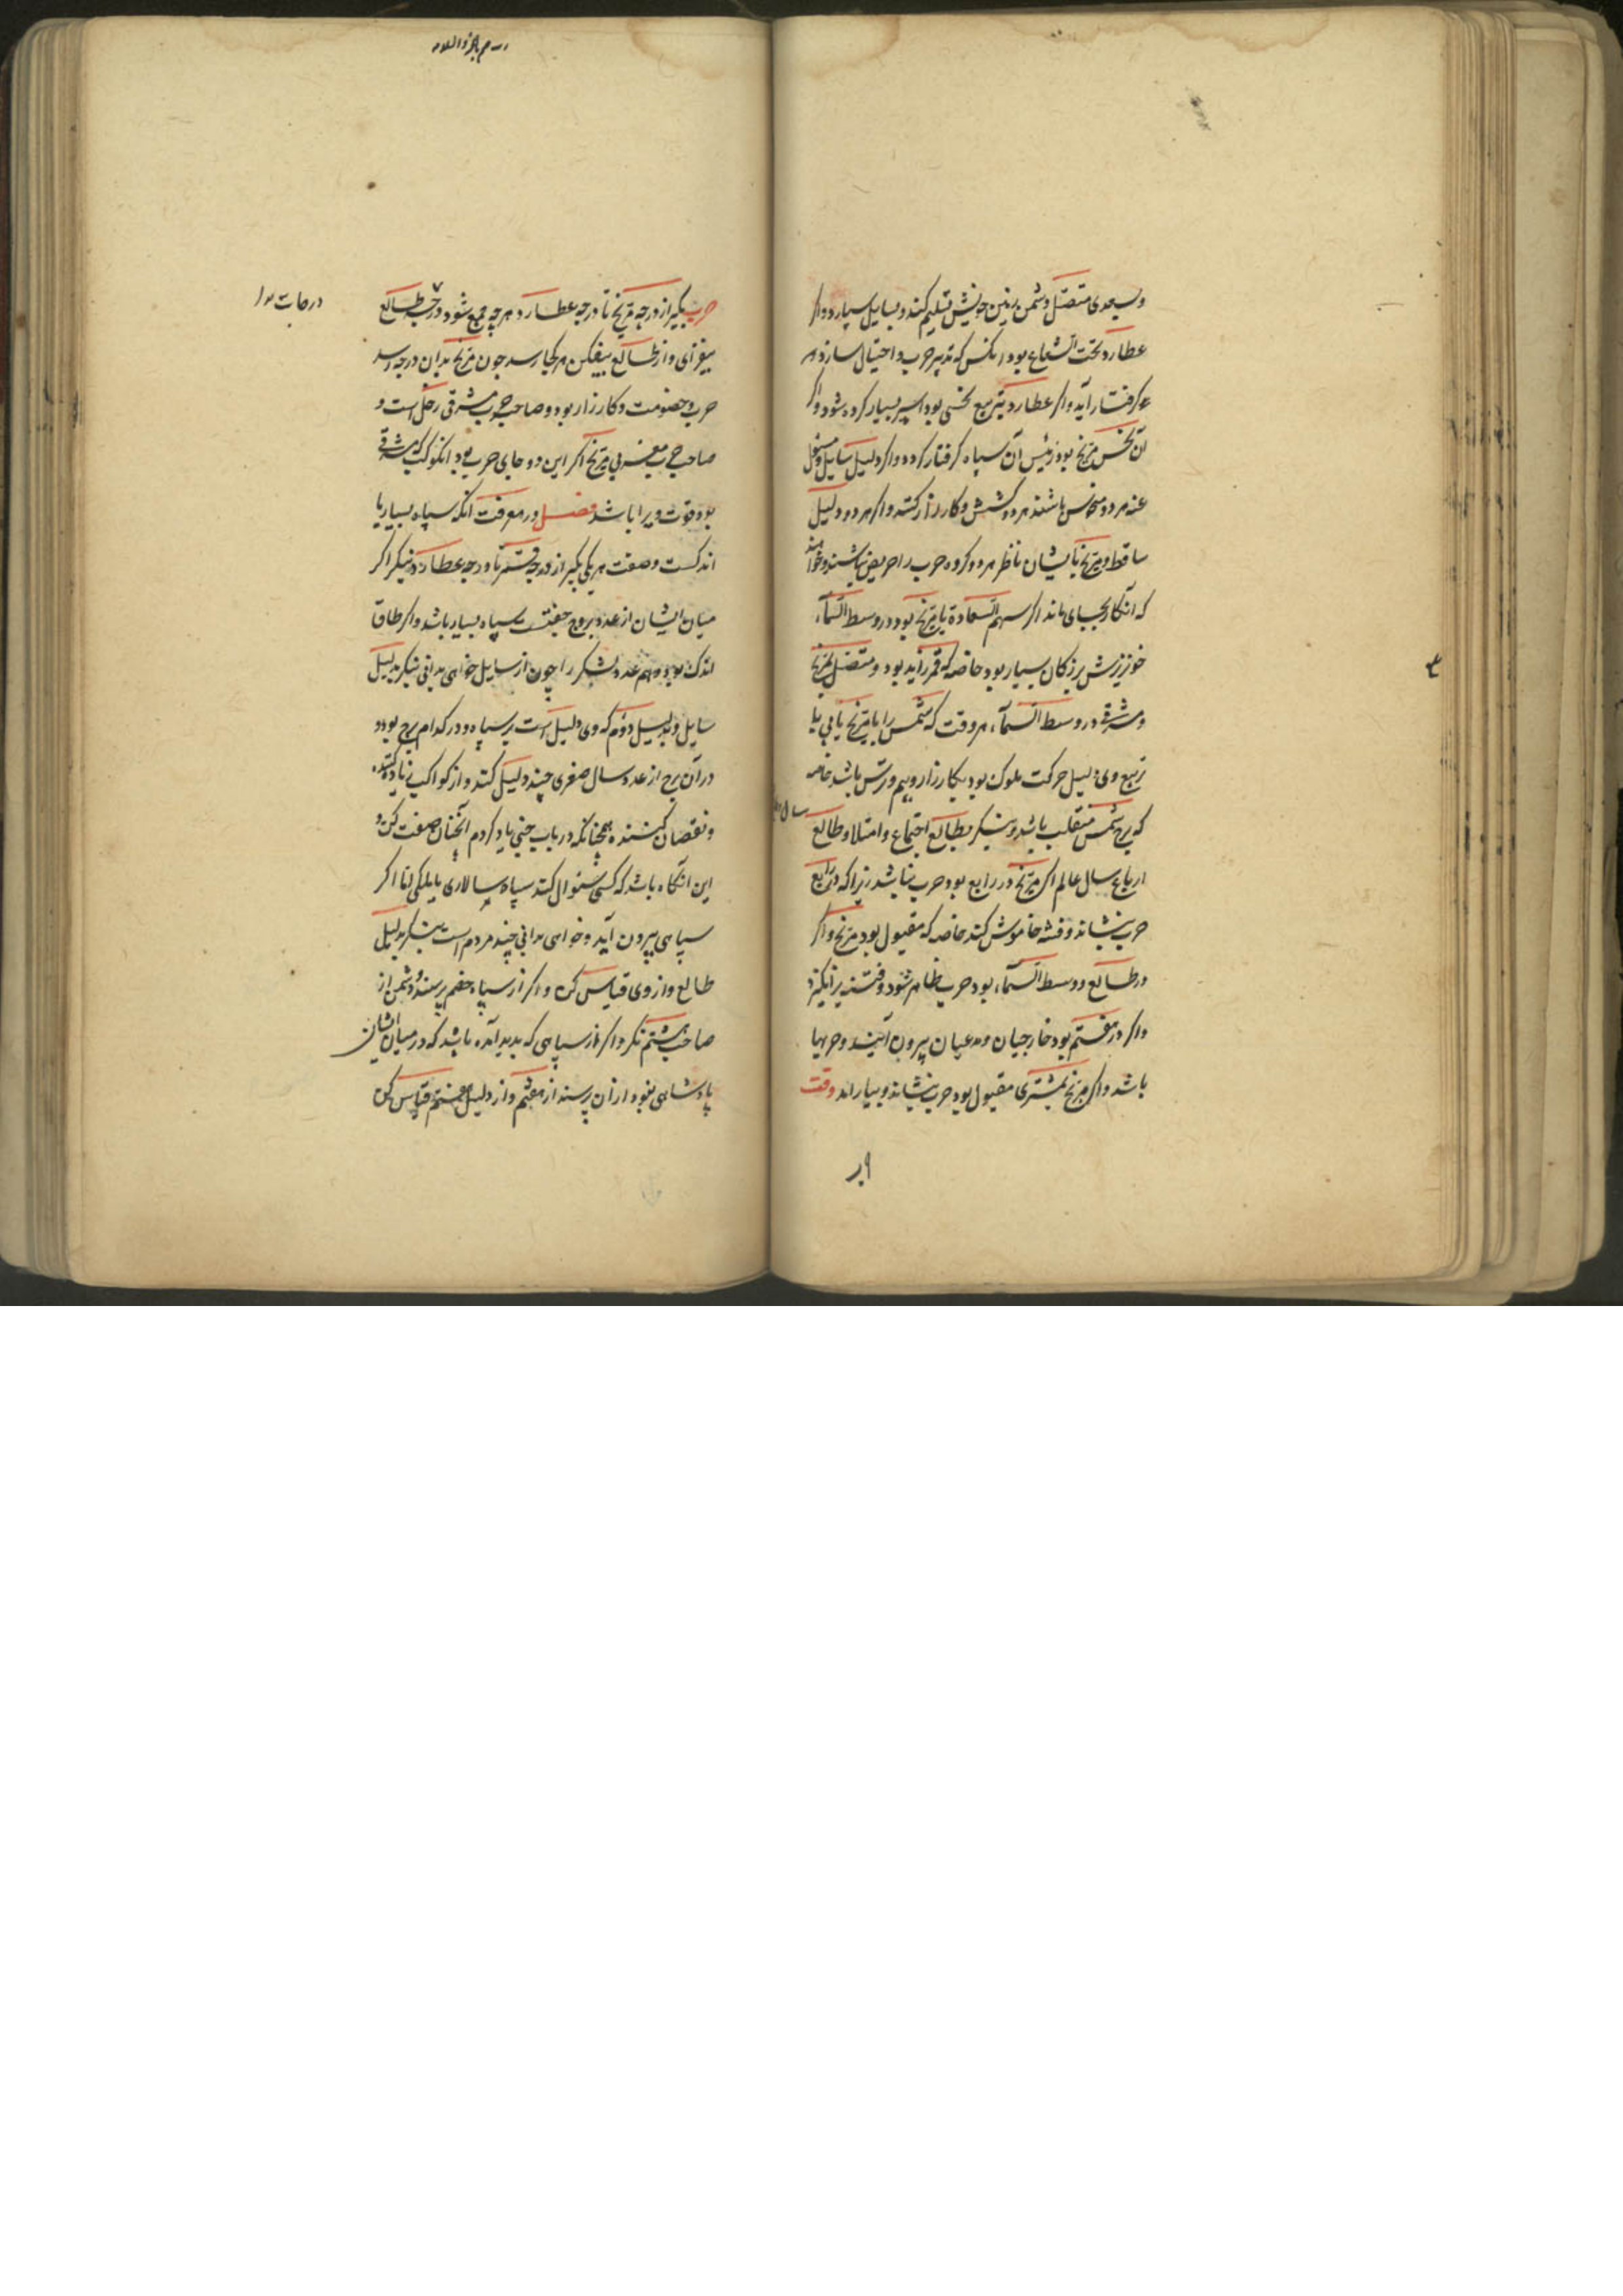 وبسعدی متصل دشمن برین خویش تسلیم کند و بسایل سپارد و اکر
عطارد تحت الشعاع بود انکس که تدبیر حرب و احتیال سازد هر
کرفتار آید و اکر عطارد بتربیع نحسی بود اسیر بسیار کرده شود و اکر
آن نحس مریخ بود رئیس آن سپاه کرفتار کردد و اکر دلیل سایل و مسئول
عنه هر دو متحاس باشند هر دو کشش و کارزار کنند و اکر هر دو دلیل
ساقط و مریخ بایشان ناظر هر دو کروه حرب را حریص نباشند و خواهند
که آن کار بجای ماند اکر سهم السعادة با مریخ بود در وسط السمآء
خونریزش بزرکان بسیار بود خاصه که قمر زاید بود و متصل بمریخ
و مشرقی در وسط السمآء، هر وقت که شمس را با مریخ یابی یا
تربیع وی دلیل حرکت ملوک بود بکارزار و بیم و ترس باشد خاصه
که برج شمس منقلب باشد و بنکر بطالع اجتماع و امتلا و طالع
سال
ارباع سال عالم اکر مریخ در رابع بود حرب نباشد زیرا که در رابع
حرب بنشاند و فتنه خاموش کند خاصه که مقبول بود مریخ و اکر
در طالع و وسط السمآء بود حرب ظاهر شود و فتنه برانکیزد
و اکر در هفتم بود خارجیان و مدعیان بیرون آیند و حربها
باشد و اکر مریخ بمشتری مقبول بود حرب بنشاند و بیاراند وقت
حرب بکیر از درجه مریخ تا درجه عطارد هر چه جمع شود درجه طالع
درجات
بیفزای و از طالع بیفکن هر کجا رسد چون مریخ بدان درجه رسد
حرب و خصومت و کارزار بود و صاحب حرب مشرقی زحل است و
صاحب حرب مغربی مریخ اکر این دو جای حرب بود انکو کب که مشرقی
بود قوت ویرا باشد فصل در معرفت آنکه سپاه بسیار یا
اندکست و صفت هر یکی بکیر از درجه قمر تا درجه عطارد و بنکر اکر
میان ایشان از عدد بروج جفتست سپاه بسیار باشد و اکر طاق
اندک بود و هم عدد لشکر را چون از سایل خواهی بدانی بنکر بدلیل
سایل و بدلیل دوم که وی دلیل است بر سپاه و در کدام برج بود و
در آن برج از عدد سال صغری چند دلیل کند و از کواکب زیاده کننده
و نقصان کننده همچنانکه در باب جنی یاد کردم آنچنان صفت کن و
این انکاه باشد که کسی سئوال کند سپاه سالاری یا ملکی اما اکر
سپاهی بیرون آید و خواهی بدانی چند مردم است بنکر بدلیل
طالع و از وی قیاس کن و اکر از سپاه خصم پرسند و دشمن از
صاحب هشتم نکر و اکر از سپاهی که بدید آمده باشد که در میان ایشان
پادشاهی نبود از آن پرسند از هفتم و از دلیل هفتم قیاس کن